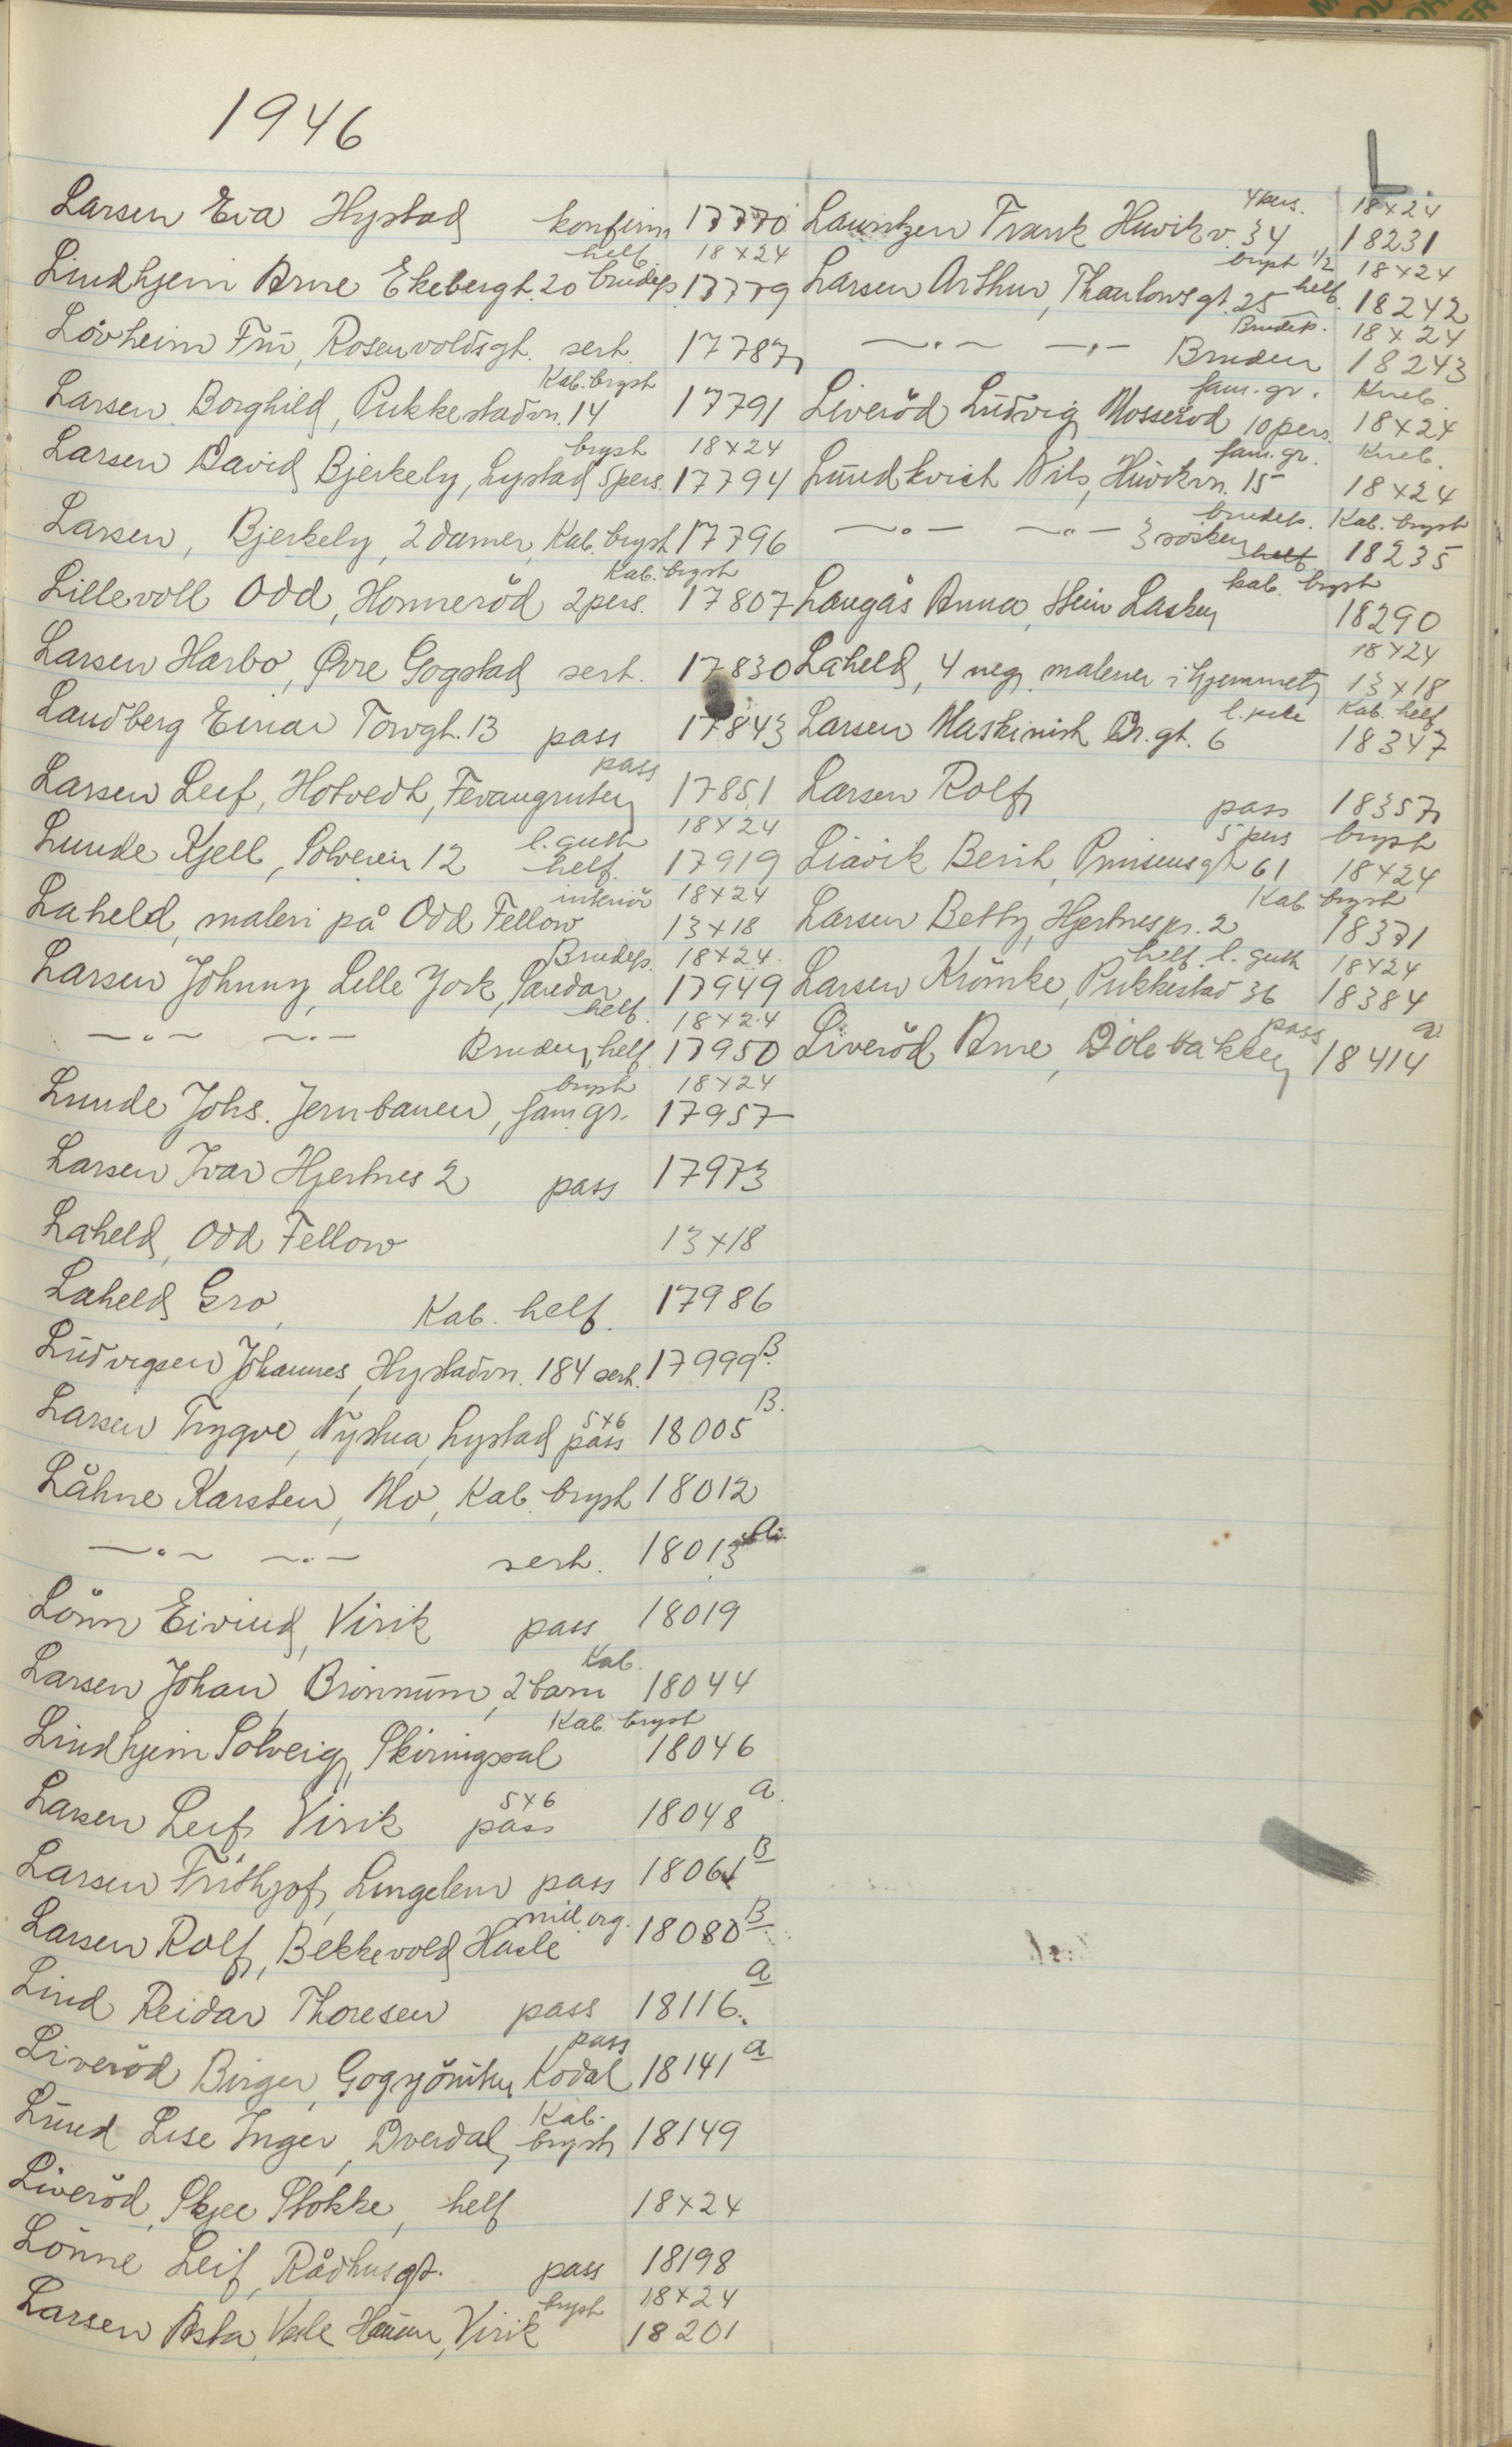 1946
L
Larsen Eva Hystad konfirm 17770
Lindhjem Arne Ekebergt. 20 helf. brudep 18x24 17779
Lövheim Fru, Rosenvoldsgt. sert. 17787
Larsen Borghild, Pukkestadvn. 14 Kab. bryst 17791
Larsen David Bjerkely, Lystad 5 pers. bryst 18x24 17794
Larsen, Bjerkely, 2 damer, Kab. bryst 17796
Lillevoll Odd, Honneröd 2 pers. Kab. bryst 17807
Larsen Harbo, Øvre Gogstad sert. 17830
Landberg Einar Torvgt. 13 pass 17843
Larsen Leif, Hotvedt, pass 17851
Lunde Kjell, Solveien 12 l. gutt helf. 18x24 17919
Laheld, maleri på Odd Fellow interiör 18x24 13x18
Larsen Johnny, Lille York, Sandar Brudep. 18x24 17949
—.— —.— Bruden, helf. helf. 18x24 17950
Lunde Johs. Jernbanen, fam. gr. bryst 18x24 17957
Larsen Ivar Hjertnes 2 pass 17973
Laheld, Odd Fellow 13x18
Laheld Gro, Kab. helf. 17986
Ludvigsen Johannes, Hystadvn. 184 sert. 17999 B.
Larsen Trygve, Nystua, Lystad 5x6 pass 18005 B.
Låhne Karsten, Mo, Kab. bryst 18012
—.— —.— sert. 18013 a.
Lönn Eivind, Virik pass 18019
Larsen Johan, Brönnum, 2 barn Kab. 18044
Lindhjem Solveig, Skiringssal Kab. bryst 18046
Larsen Leif Virik 5x6 pass 18048 a.
Larsen Frithjof, Lingelem pass 18061 B
Larsen Rolf, Bekkevold Hasle mill. org. 18080 B
Lind Reidar Thoresen pass 18116. a
Liveröd Birger, Kodal pass 18141 a
Lund Lise Inger, Dverdal, Kab. bryst 18149
Liveröd, Skjee Stokke, helf 18x24
Lönne Leif, Rådhusgt. pass 18198
Larsen Asta, Vesle Haum, Virik bryst 18x24 18201
Lauritzen Frank Huvikv. 34 4 pers. 18x24 18231
Larsen Arthur, Thaulowsgt. 25 bryst 1/2 helf. 18x24 18242
—.— —.— Bruden Brudep. 18x24 18243
Liveröd Ludvig Mosseröd 10 pers. fam. gr. Kneb. 18x24
Lundkvist Nils, Huvikvn. 15 fam. gr. Kneb. 18x24
—.— —.— 3 sösken brudep. helf. Kab. bryst 18235
Langås Anna, Hein Lasken kab. bryst 18290
Laheld, 4 neg. malerier i hjemmet, 18x24 13x18
Larsen Maskinist Dr. gt. 6 l. pike Kab. helf 18347
Larsen Rolf pass 18357
Liavik Berit, Prinsensgt 61 5 pers bryst 18x24
Larsen Betty, Hjertnespr. 2 Kab. bryst 18371
Larsen Krömke, Pukkestad 36 helf. l. gutt 18x24 18384
Liveröd Arne, Dölebakken pass 18414 a.